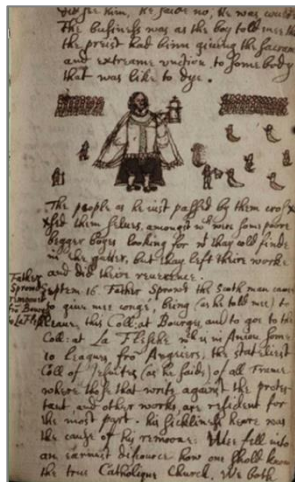 the Business was as the boy told mee th
the preist had binn giveing the sacram
and extreame unction to somebody
that was like to dye.
The people as he just passed by them cross
them selves, amongst were some poore
begger boyes looking for wt thay cold finde
in the gutter, but thay left thire worke
and did thire reverence.
Father
Sprowd
remooves
fro Bourg
to La Fl
Septem 16 Father Sprowd the Scotch man came
to give mee conge, being (as he told me) to
leave this Coll: at Bourges and to goe to the
Coll: at La Flesche wch is in Aniou some
10 leagues fro Angiers, the stateliest
Coll of Jesuites (as he saide) of all France
where those that write against the protes-
tant and other works are resident for
the most part. his sicklines heare was
the cause of his remoove. Wee fell into
an earnest discource how one shold know
the true Catholique Church. We both